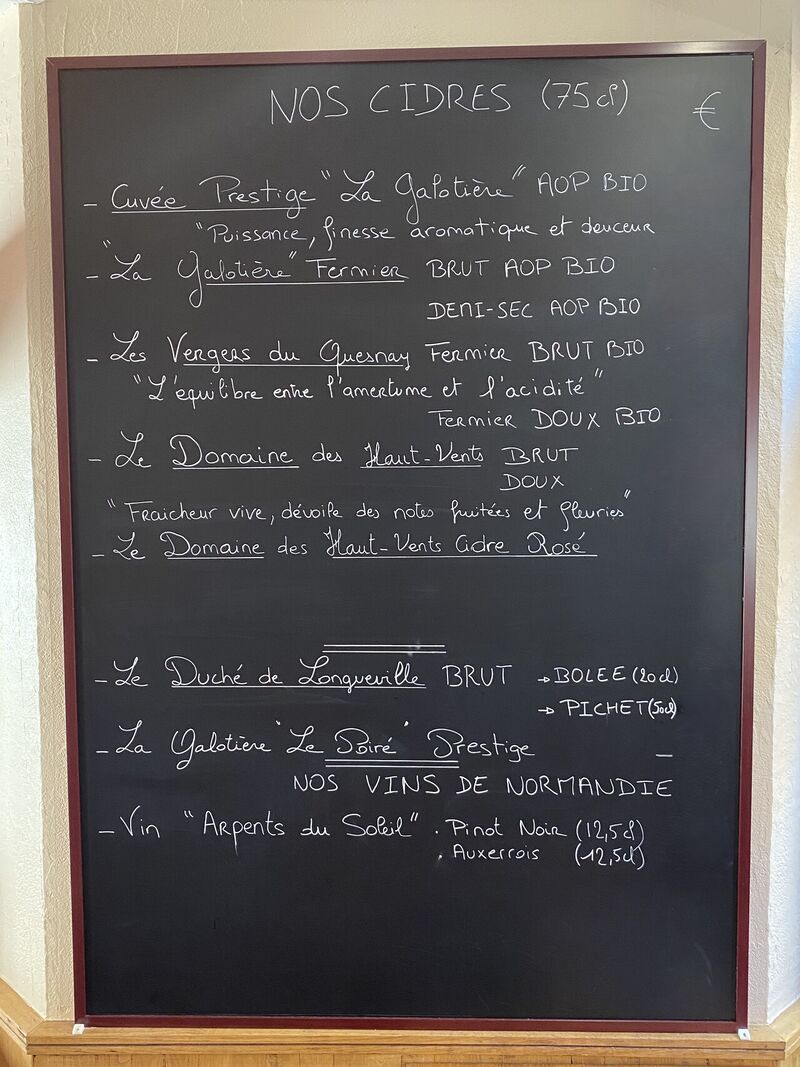 NOS CIDRES (75cl) €
- Cuvée Prestige "La Galotière" AOP BIO
"Puissance, finesse aromatique et douceur
- "La Galotière" Fermier BRUT AOP BIO
DEMI-SEC AOP BIO
- Les Vergers du Quesnay Fermier BRUT BIO
"L'équilibre entre l'amertume et l'acidité"
Fermier DOUX BIO
- Le Domaine des Haut-Vents BRUT
DOUX
"Fraicheur vive, dévoile des notes fruitées et fleuries"
- Le Domaine des Haut-Vents Cidre Rosé
- Le Duché de Longueville BRUT → BOLEE (20cl)
→ PICHET (50cl)
- La Galotière "Le Poiré" Prestige –
NOS VINS DE NORMANDIE
- Vin "Arpents du Soleil" . Pinot Noir (12,5cl)
. Auxerrois (12,5cl)